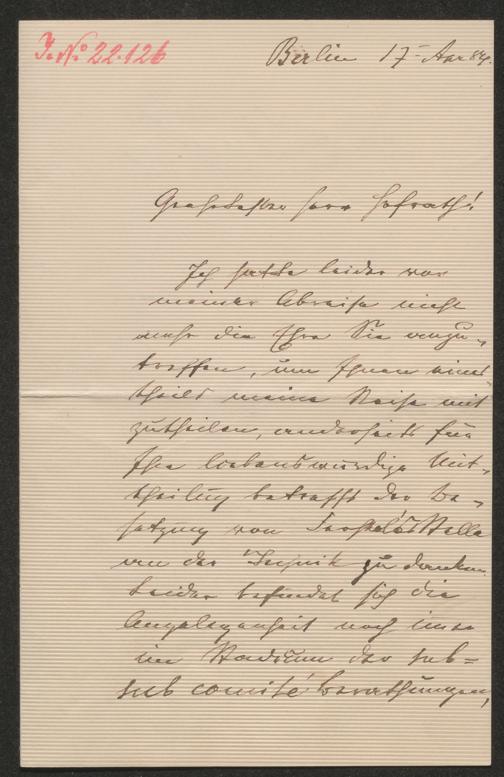 J. No 22.126
Berlin 17 84.
Geehrtester Herr Hofrath!
Ich hatte leider vor
meiner Abreise nicht
mehr die Ehre Sie anzu-
treffen, um Ihnen eines
theils meine Reise mit
zutheilen, anderseits für
Ihre liebenswürdige Mit-
theilung betreffs der Be-
setzung von Stelle
an der Technik zu danken
Leider befindet sich die
Angelegenheit noch immer
im Stadium der sub-
sub comité berathungen,